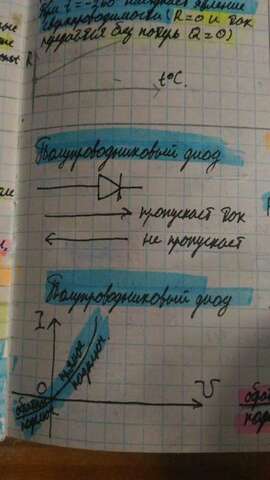 при t=-260° наступает явление
сверхпроводимости (R=0 и ток
передаётся без потерь Q=0)
R
t°C.
Полупроводниковый диод
пропускает ток
не пропускает
Полупроводниковый диод
I
прямое
подключ.
O
U
обратное
подключ.